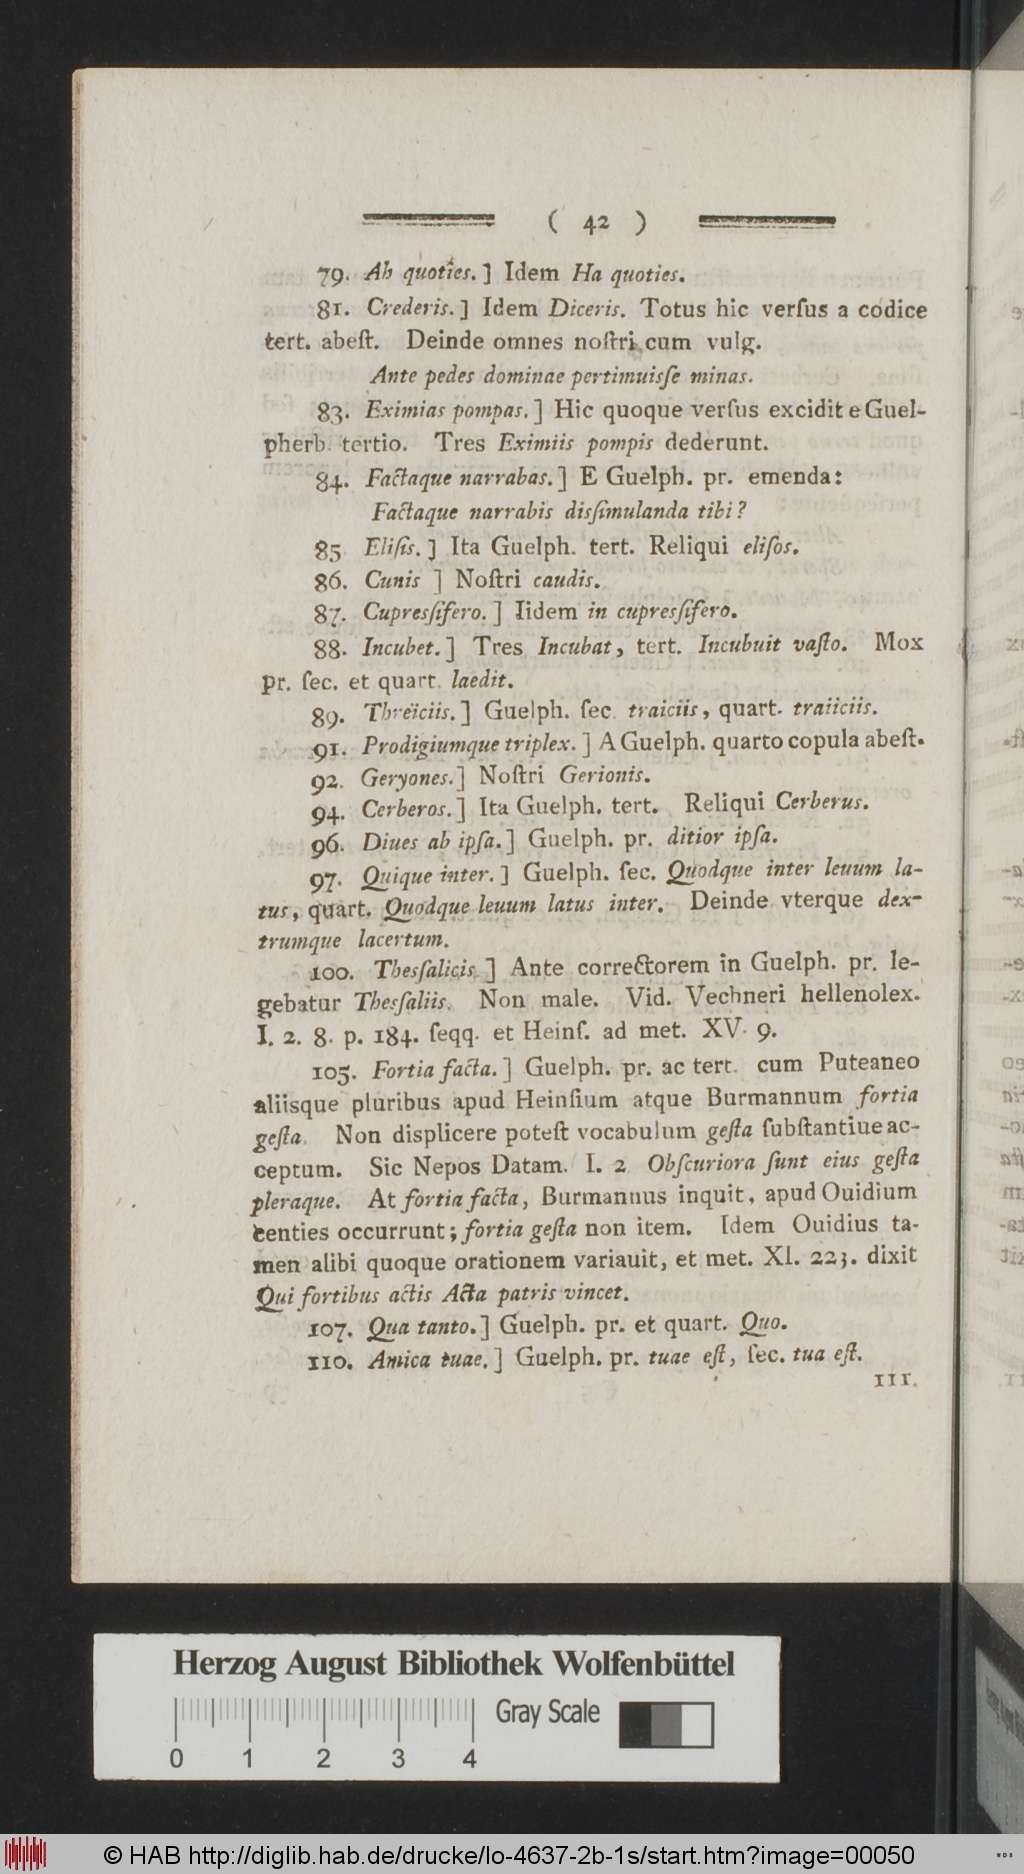 ( 42 )
79. Ah quoties.] Idem Ha quoties.
81. Crederis.] Idem Diceris. Totus hic verſus a codice
tert. abeſt. Deinde omnes noſtri cum vulg.
Ante pedes dominae pertimuisſe minas.
83. Eximias pompas.] Hic quoque verſus excidit e Guel-
pherb. tertio. Tres Eximiis pompis dederunt.
84. Factaque narrabas.] E Guelph. pr. emenda:
Factaque narrabis disſimulanda tibi?
85 Eliſis.] Ita Guelph. tert. Reliqui eliſos.
86. Cunis ] Noſtri caudis.
87. Cupresſifero.] Iidem in cupresſifero.
88. Incubet.] Tres Incubat, tert. Incubuit vaſto. Mox
pr. ſec. et quart. laedit.
89. Threïciis.] Guelph. ſec. traiciis, quart. traiiciis.
91. Prodigiumque triplex.] A Guelph. quarto copula abeſt.
92. Geryones.] Noſtri Gerionis.
94. Cerberos.] Ita Guelph. tert. Reliqui Cerberus.
96. Diues ab ipſa.] Guelph. pr. ditior ipſa.
97. Quique inter.] Guelph. ſec. Quodque inter leuum la-
tus, quart. Quodque leuum latus inter. Deinde vterque dex-
trumque lacertum.
100. Thesſalicis ] Ante correctorem in Guelph. pr. le-
gebatur Thesſaliis. Non male. Vid. Vechneri hellenolex.
I. 2. 8. p. 184. ſeqq. et Heinſ. ad met. XV. 9.
105. Fortia facta.] Guelph. pr. ac tert. cum Puteaneo
aliisque pluribus apud Heinſium atque Burmannum fortia
geſta. Non displicere poteſt vocabulum geſta ſubſtantiue ac-
ceptum. Sic Nepos Datam. I. 2 Obſcuriora ſunt eius geſta
pleraque. At fortia facta, Burmannus inquit, apud Ouidium
centies occurrunt; fortia geſta non item. Idem Ouidius ta-
men alibi quoque orationem variauit, et met. XI. 223. dixit
Qui fortibus actis Acta patris vincet.
107. Qua tanto.] Guelph. pr. et quart. Quo.
110. Amica tuae.] Guelph. pr. tuae eſt, ſec. tua eſt.
111.
Herzog August Bibliothek Wolfenbüttel
Gray Scale
0 1 2 3 4
© HAB http://diglib.hab.de/drucke/lo-4637-2b-1s/start.htm?image=00050